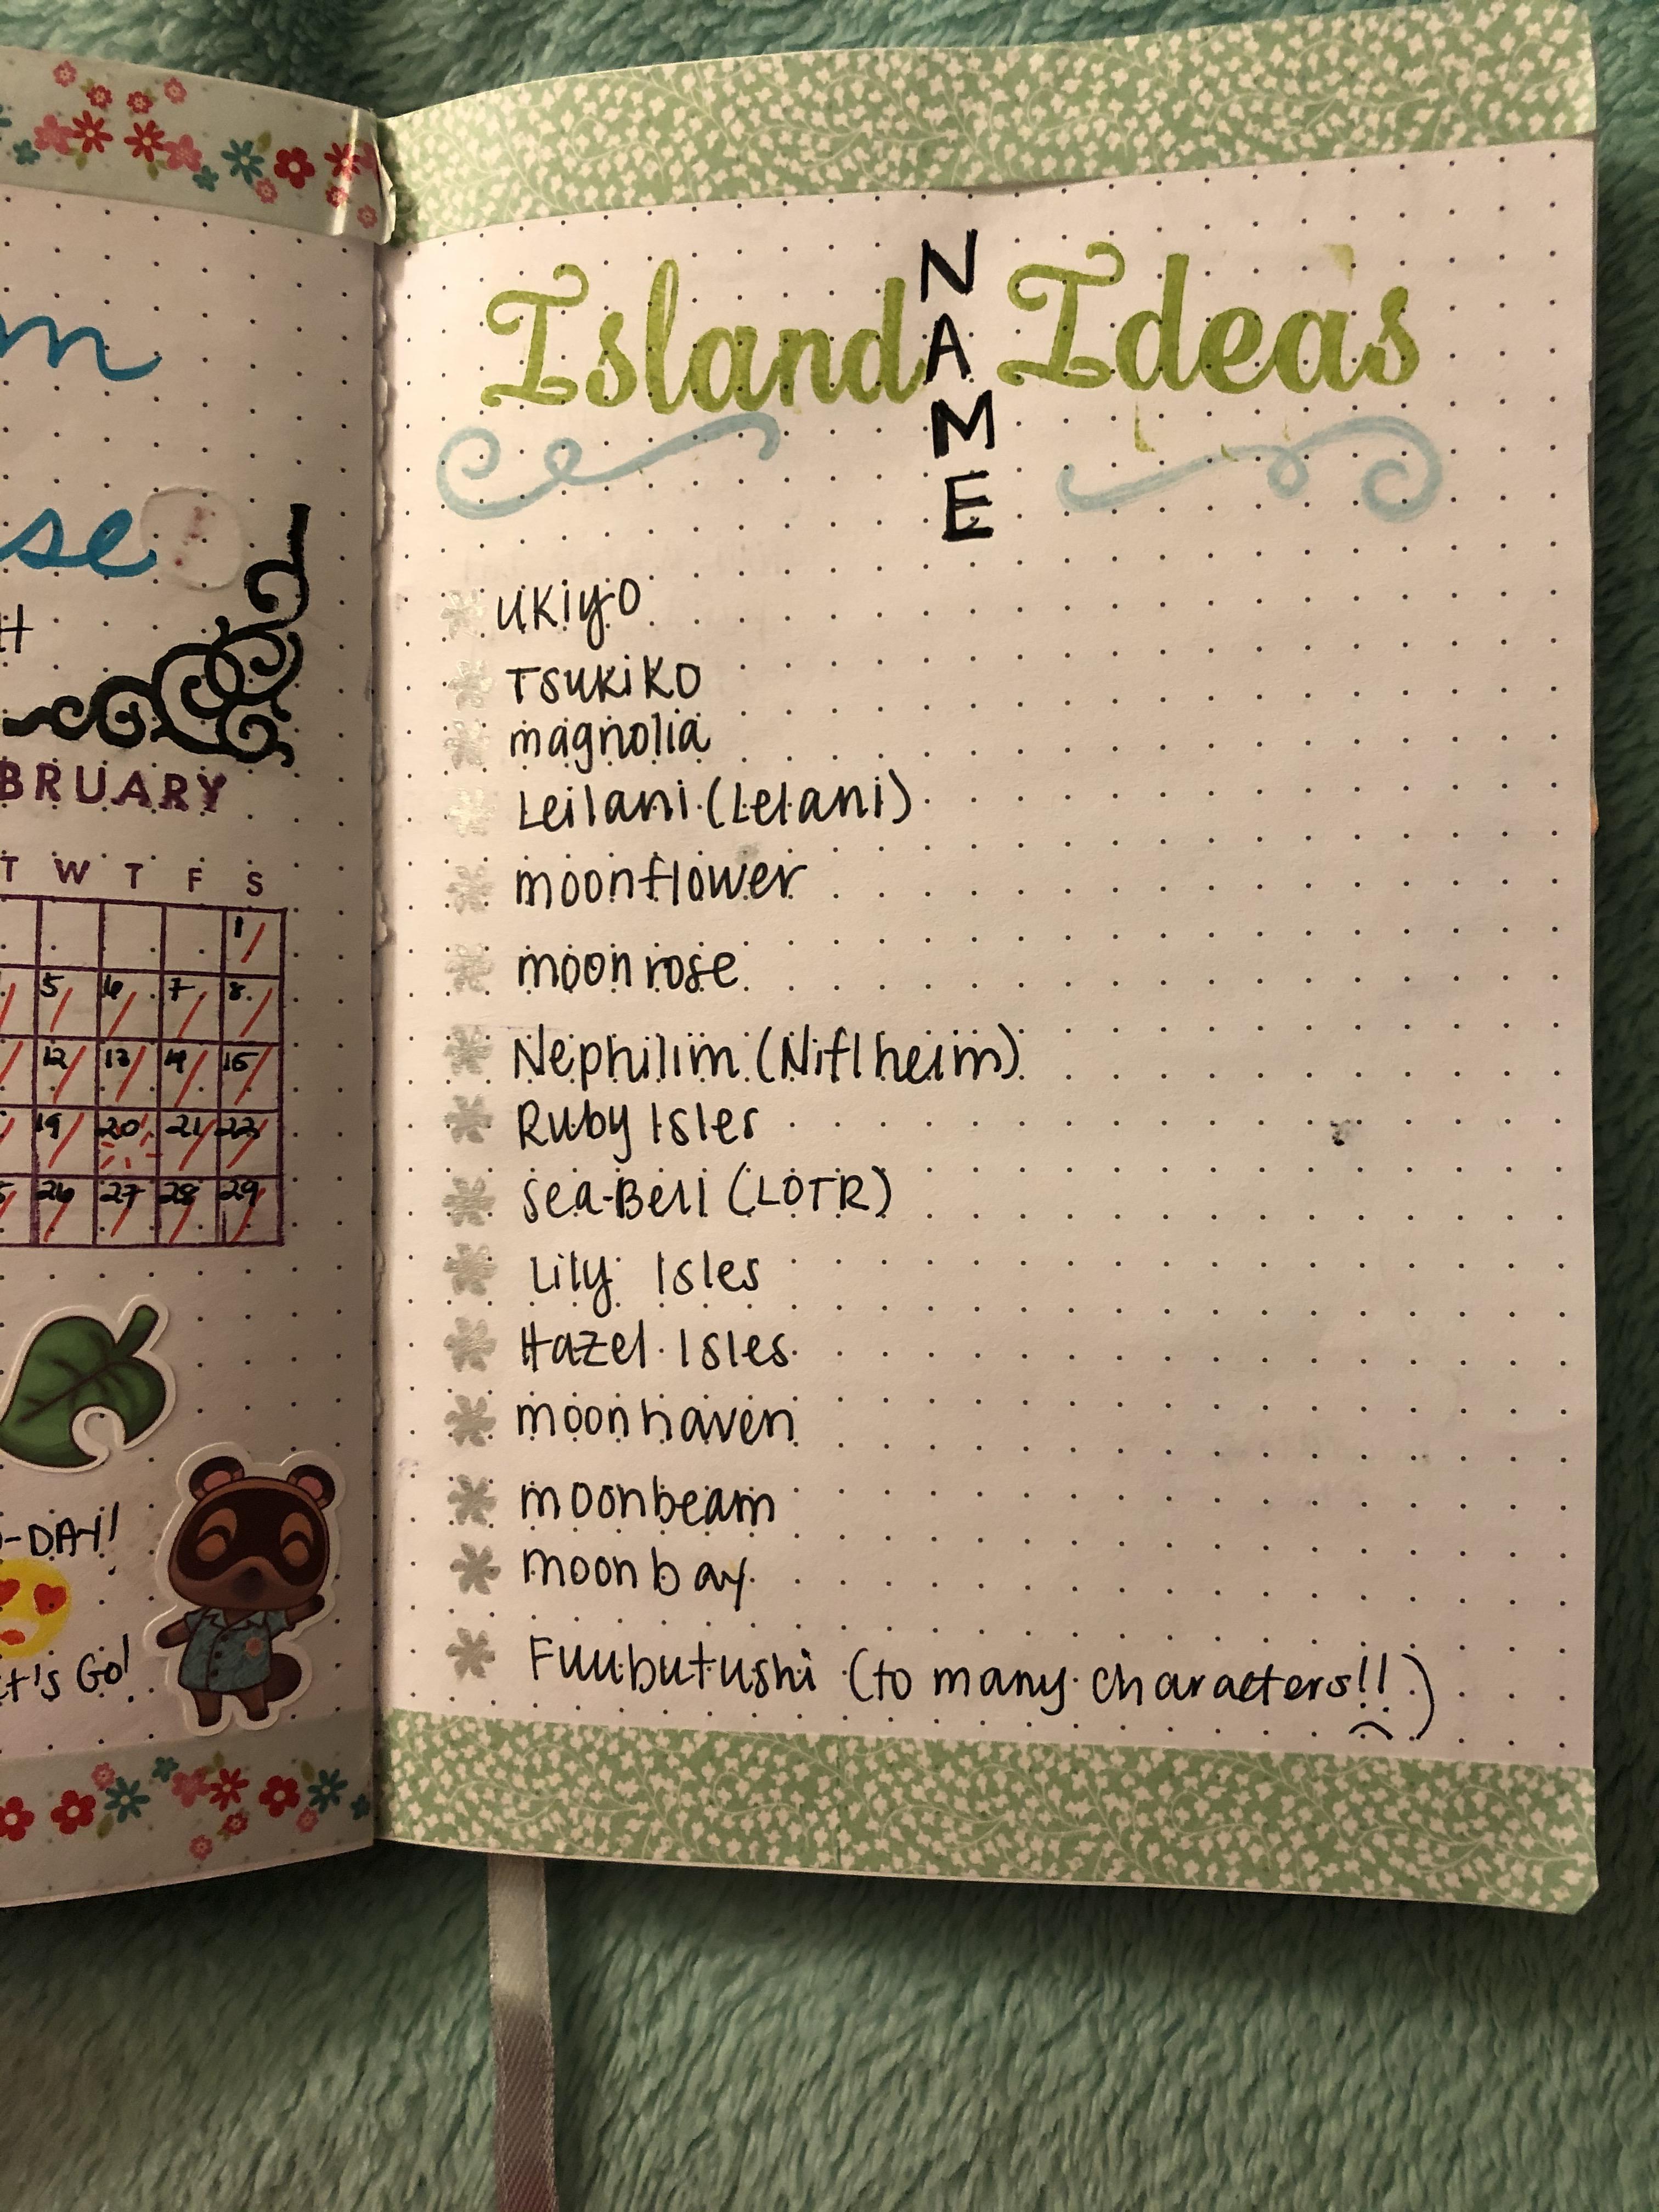 m
se
H
BRUARY
T W T F S
1
5 6 7 8
12 13 14 15
19 20 21 22
26 27 28 29
-DAY!
et's Go!
Island NAME Ideas
UKiyO
TSUKiKO
magnolia
Leilani (Lelani)
moonflower
moonrose
Nephilim (Niflheim)
Ruby Isles
Sea-Bell (LOTR)
Lily Isles
Hazel Isles
moonhaven
moonbeam
moonbay
Fuubutushi (to many characters!!)